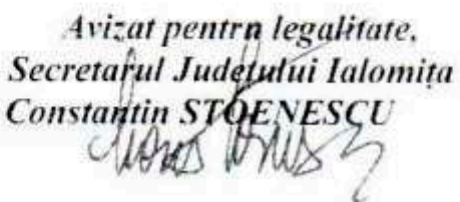 Avizat pentru legalitate,
Secretarul Județului Ialomița
Constantin STOENESCU